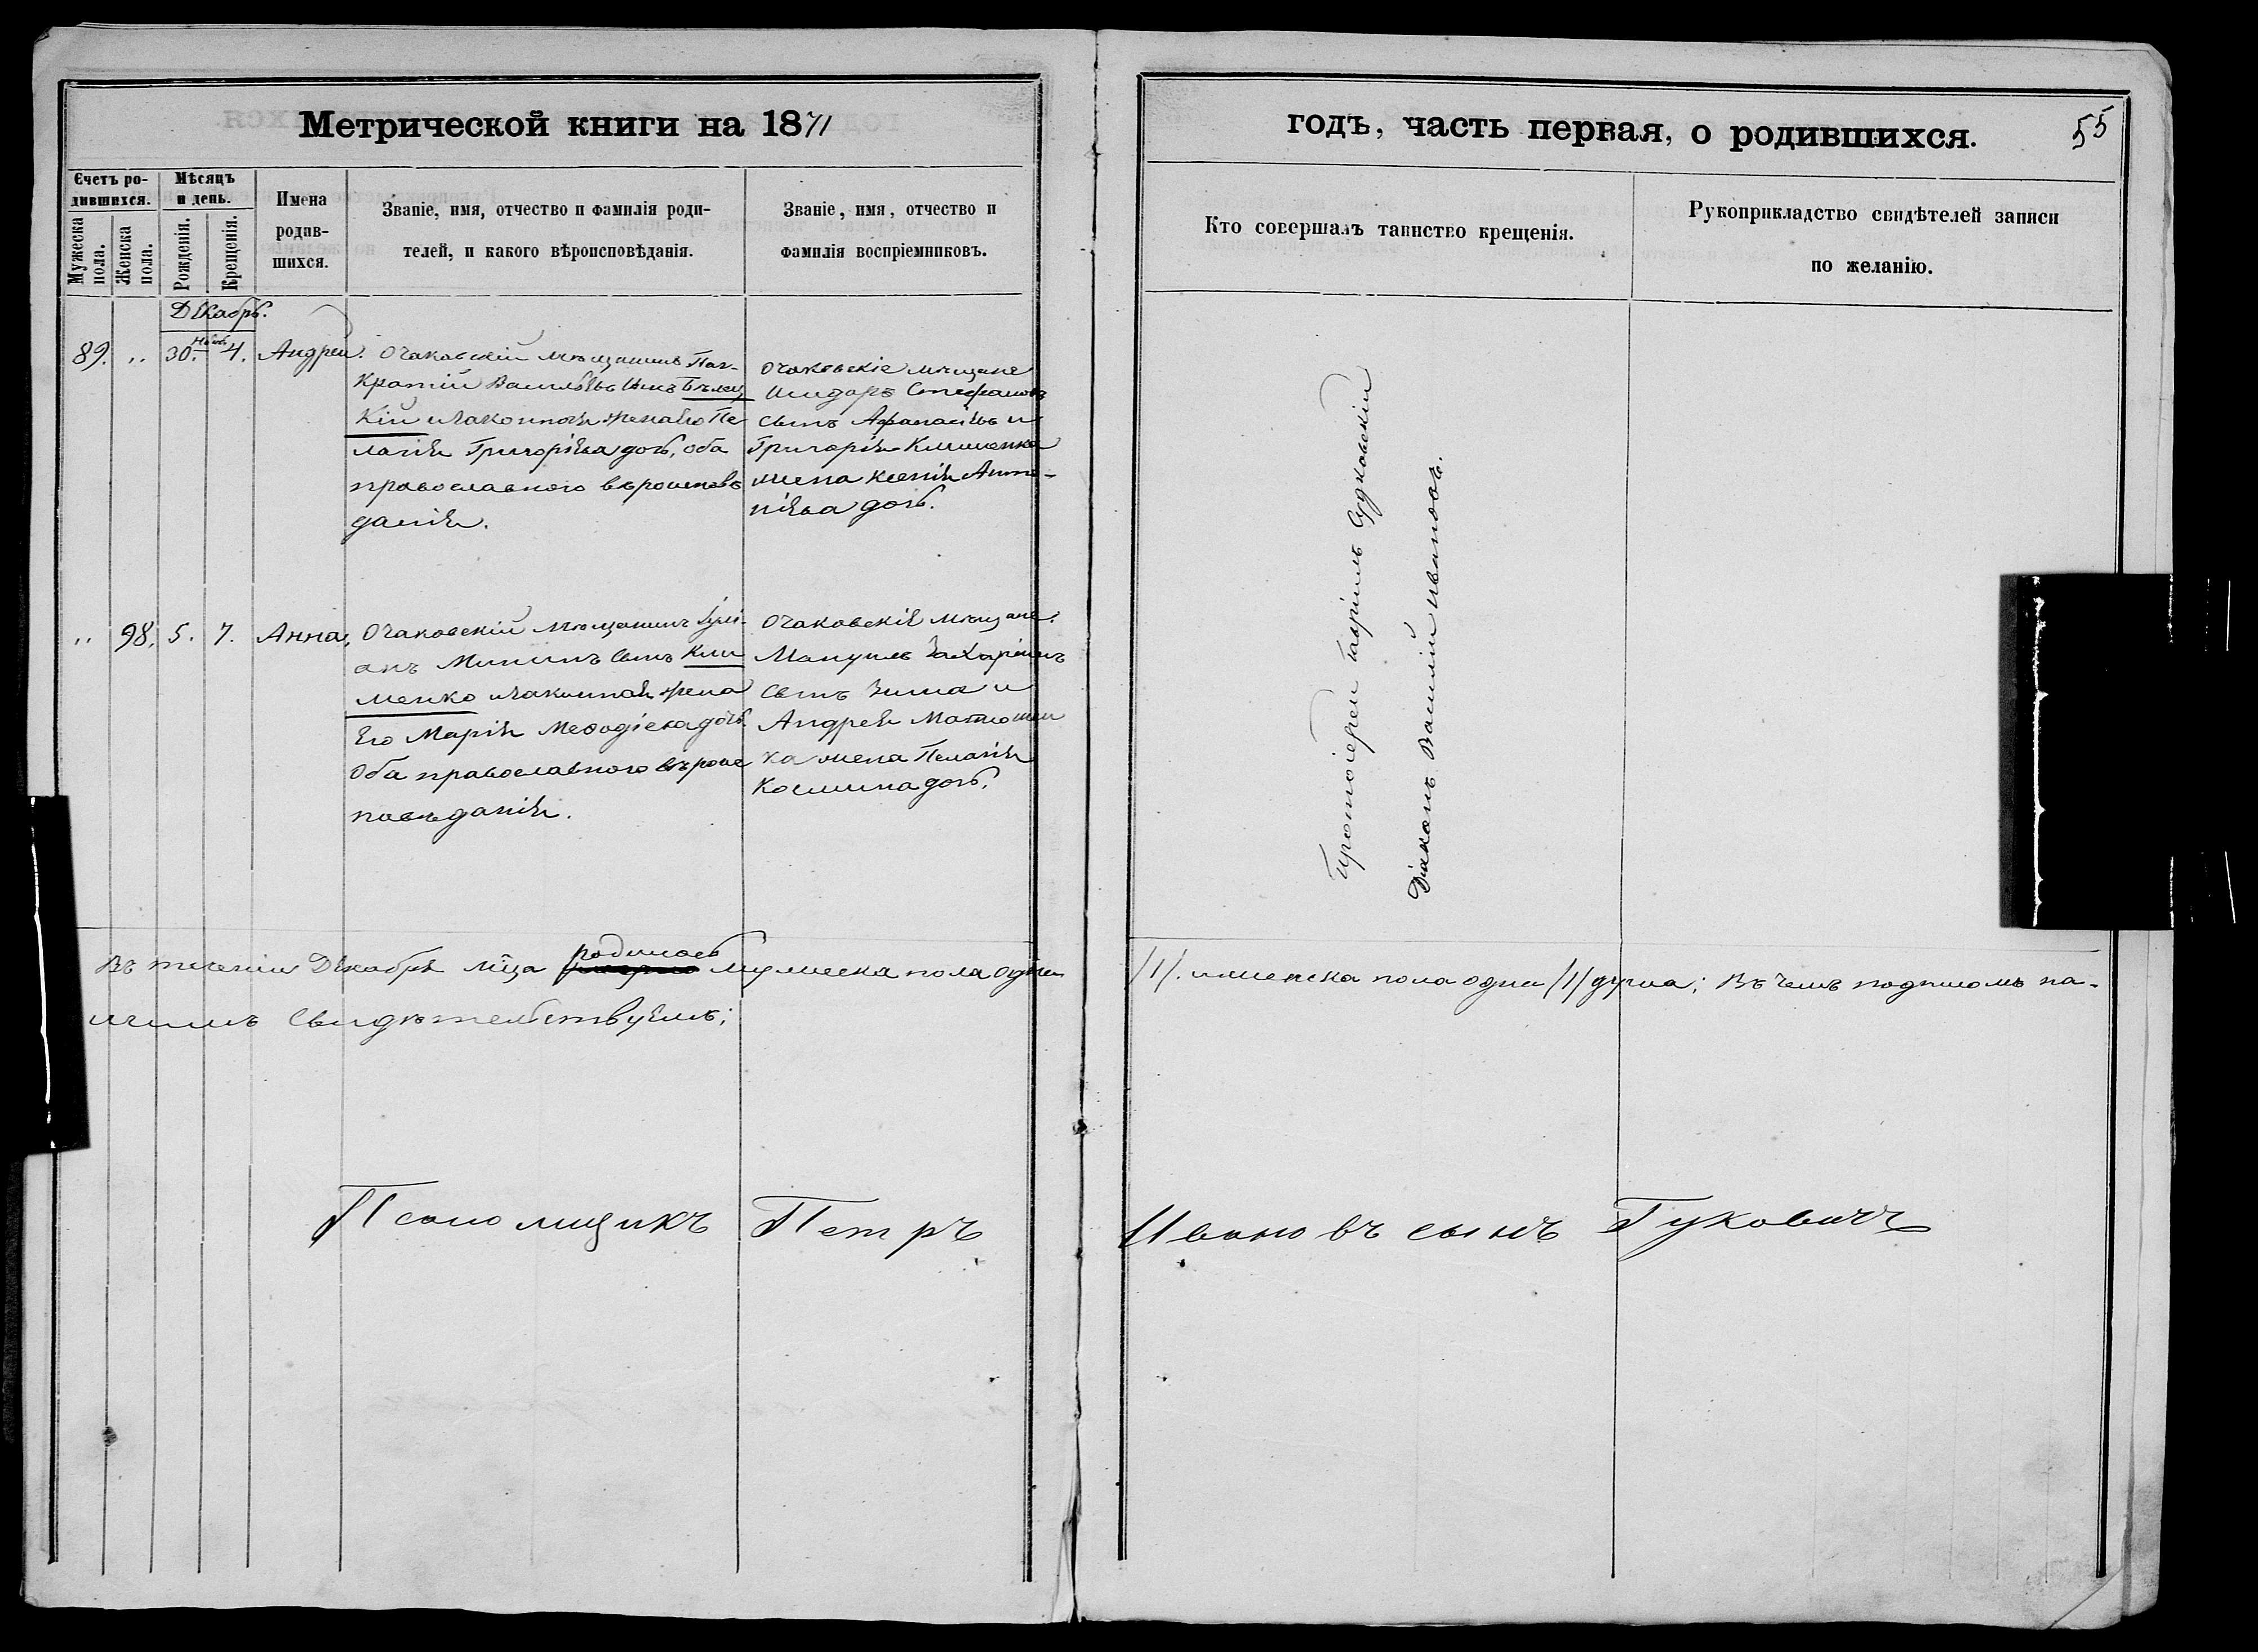 Метрической книги на 1871
годъ, часть первая, о родившихся.
55
Счетъ ро-
дившихся.
Мѣсяцъ
и день.
Мужеска
пола.
Женска
пола.
Рожденія.
Крещенія.
Имена
родив-
шихся.
Званіе, имя, отчество и фамилія роди-
телей, и какого вѣроисповѣданія.
Званіе, имя, отчество и
фамилія воспріемниковъ.
Кто совершалъ таинство крещенія.
Рукоприкладство свидѣтелей записи
по желанію.
Декабрь.
89. " 30. Нояб. 4. Андрей.
Очаковскій мѣщанинъ Пан-
кратій Васильевъ сынъ Бѣлец
кій и законная жена его Пе
лагія Григорьева дочь, оба
православнаго вѣроисповѣ
данія.
Очаковскіе мѣщане
Исидоръ Стефановъ
сынъ Афанасьевъ и
Григорія Клименка
жена Ксенія Анто-
ніева дочь.
" 98. 5. 7. Анна,
Очаковскій мѣщанинъ Іулі-
анъ Мининъ сынъ Кли
менко и законная жена
его Марія Меѳодіева дочь
оба православнаго вѣроис
повѣданія.
Очаковскіе мѣщане.
Мануилъ Захаріинъ
сынъ Зима и
Андрея Матюшен
ка жена Пелагія
Космина дочь.
Протоіерей Гавріилъ Судковскій
Діаконъ Василій Ивановъ.
Въ теченіи Декабря мца родилось мужеска пола одна
/1/. и женска пола одна /1/ душа; въ чемъ подписомъ на-
шимъ свидѣтельствуемъ;
Псаломщикъ Петръ
Ивановъ сынъ Гуковичъ